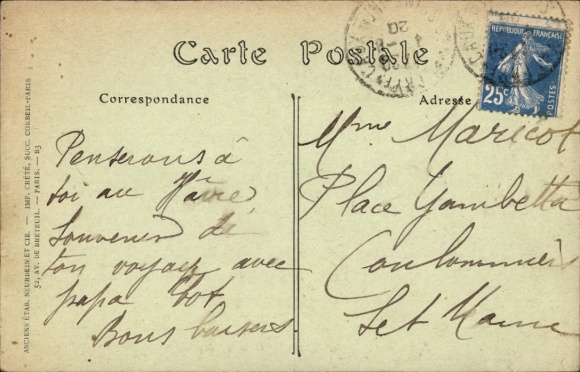 Carte Postale
Correspondance
Adresse
RÉPUBLIQUE FRANÇAISE
25c
POSTES
Penserons à
toi au Havre
Souvenir de
ton voyage avec
papa
Bons baisers
Mme Maricot
Place Gambetta
Coulommiers
Set Marne
ANCIENS ÉTAB. NEURDEIN ET CIE. — IMP. CRÉTÉ, SUCC. CORBEIL-PARIS
52, AV. DE BRETEUIL. — PARIS. — B3